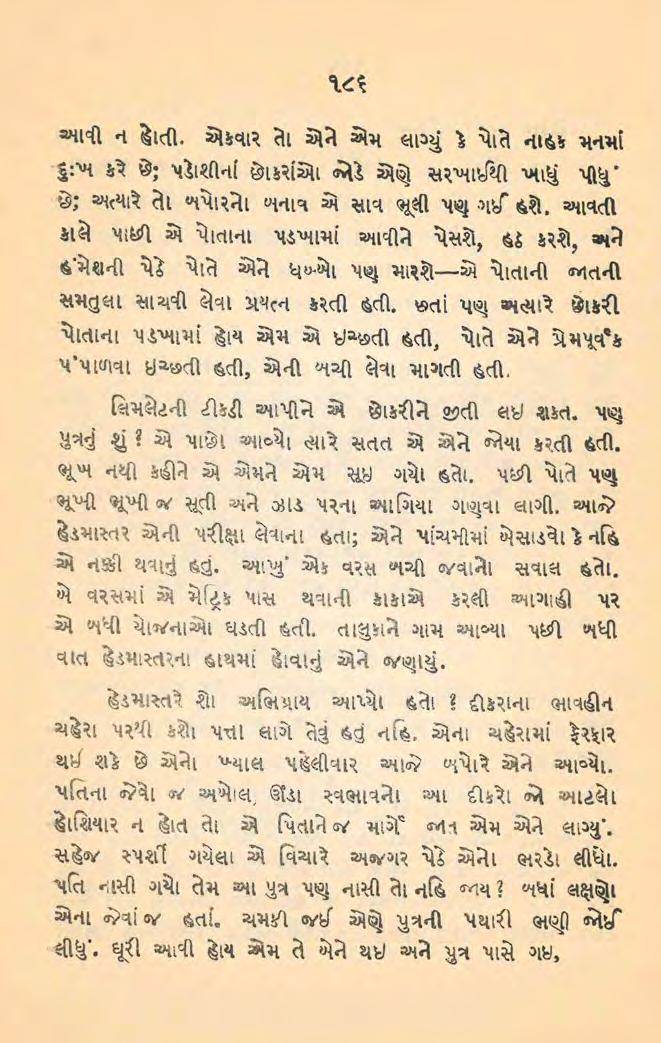 ૧૮૬
આવી ન હોતી. એકવાર તો એને એમ લાગ્યું કે પોતે નાહક મનમાં
દુઃખ કરે છે; પડોશીનાં છોકરાંઓ જોડે એણે સરખાઈથી ખાધું પીધું
છે; અત્યારે તો બપોરનો બનાવ એ સાવ ભૂલી પણ ગઈ હશે. આવતી
કાલે પાછી એ પોતાના પડખામાં આવીને પેસશે, હઠ કરશે, અને
હંમેશની પેઠે પોતે એને ધબ્બો પણ મારશે—એ પોતાની જાતની
સમતુલા સાચવી લેવા પ્રયત્ન કરતી હતી. છતાં પણ અત્યારે છોકરી
પોતાના પડખામાં હોય એમ એ ઇચ્છતી હતી, પોતે એને પ્રેમપૂર્વક
પંપાળવા ઇચ્છતી હતી, એની બચી લેવા માગતી હતી.
લિમલેટની ટીકડી આપીને એ છોકરીને જીતી લઇ શકત. પણ
પુત્રનું શું ? એ પાછો આવ્યો ત્યારે સતત એ એને જોયા કરતી હતી.
ભૂખ નથી કહીને એ એમને એમ સૂઇ ગયો હતો. પછી પોતે પણ
ભૂખી ભૂખી જ સૂતી અને ઝાડ પરના આગિયા ગણવા લાગી. આજે
હેડમાસ્તર એની પરીક્ષા લેવાના હતા; એને પાંચમીમાં બેસાડવો કે નહિ
એ નક્કી થવાનું હતું. આખું એક વરસ બચી જવાનો સવાલ હતો.
બે વરસમાં એ મેટ્રિક પાસ થવાની કાકાએ કરલી આગાહી પર
એ બધી યોજનાઓ ઘડતી હતી. તાલુકાને ગામ આવ્યા પછી બધી
વાત હેડમાસ્તરના હાથમાં હોવાનું એને જણાયું.
હેડમાસ્તરે શો અભિપ્રાય આપ્યો હતો ? દીકરાના ભાવહીન
ચહેરા પરથી કશો પત્તા લાગે તેવું હતું નહિ. એના ચહેરામાં ફેરફાર
થઈ શકે છે એનો ખ્યાલ પહેલીવાર આજે બપોરે એને આવ્યો.
પતિના જેવો જ અબોલ, ઊંડા સ્વભાવનો આ દીકરો જો આટલો
હોશિયાર ન હોત તો એ પિતાને જ માર્ગે જાત એમ એને લાગ્યું.
સહેજ સ્પર્શી ગયેલા એ વિચારે અજગર પેઠે એનો ભરડો લીધો.
પતિ નાસી ગયો તેમ આ પુત્ર પણ નાસી તો નહિ જાય ? બધાં લક્ષણો
એના જેવાં જ હતાં. ચમકી જઈ એણે પુત્રની પથારી ભણી જોઈ
લીધું. ઘૂરી આવી હોય એમ તે બેને થઇ અને પુત્ર પાસે ગઇ,